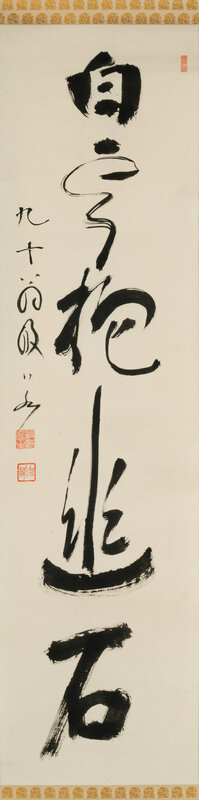 白雲抱幽石
九十翁般若